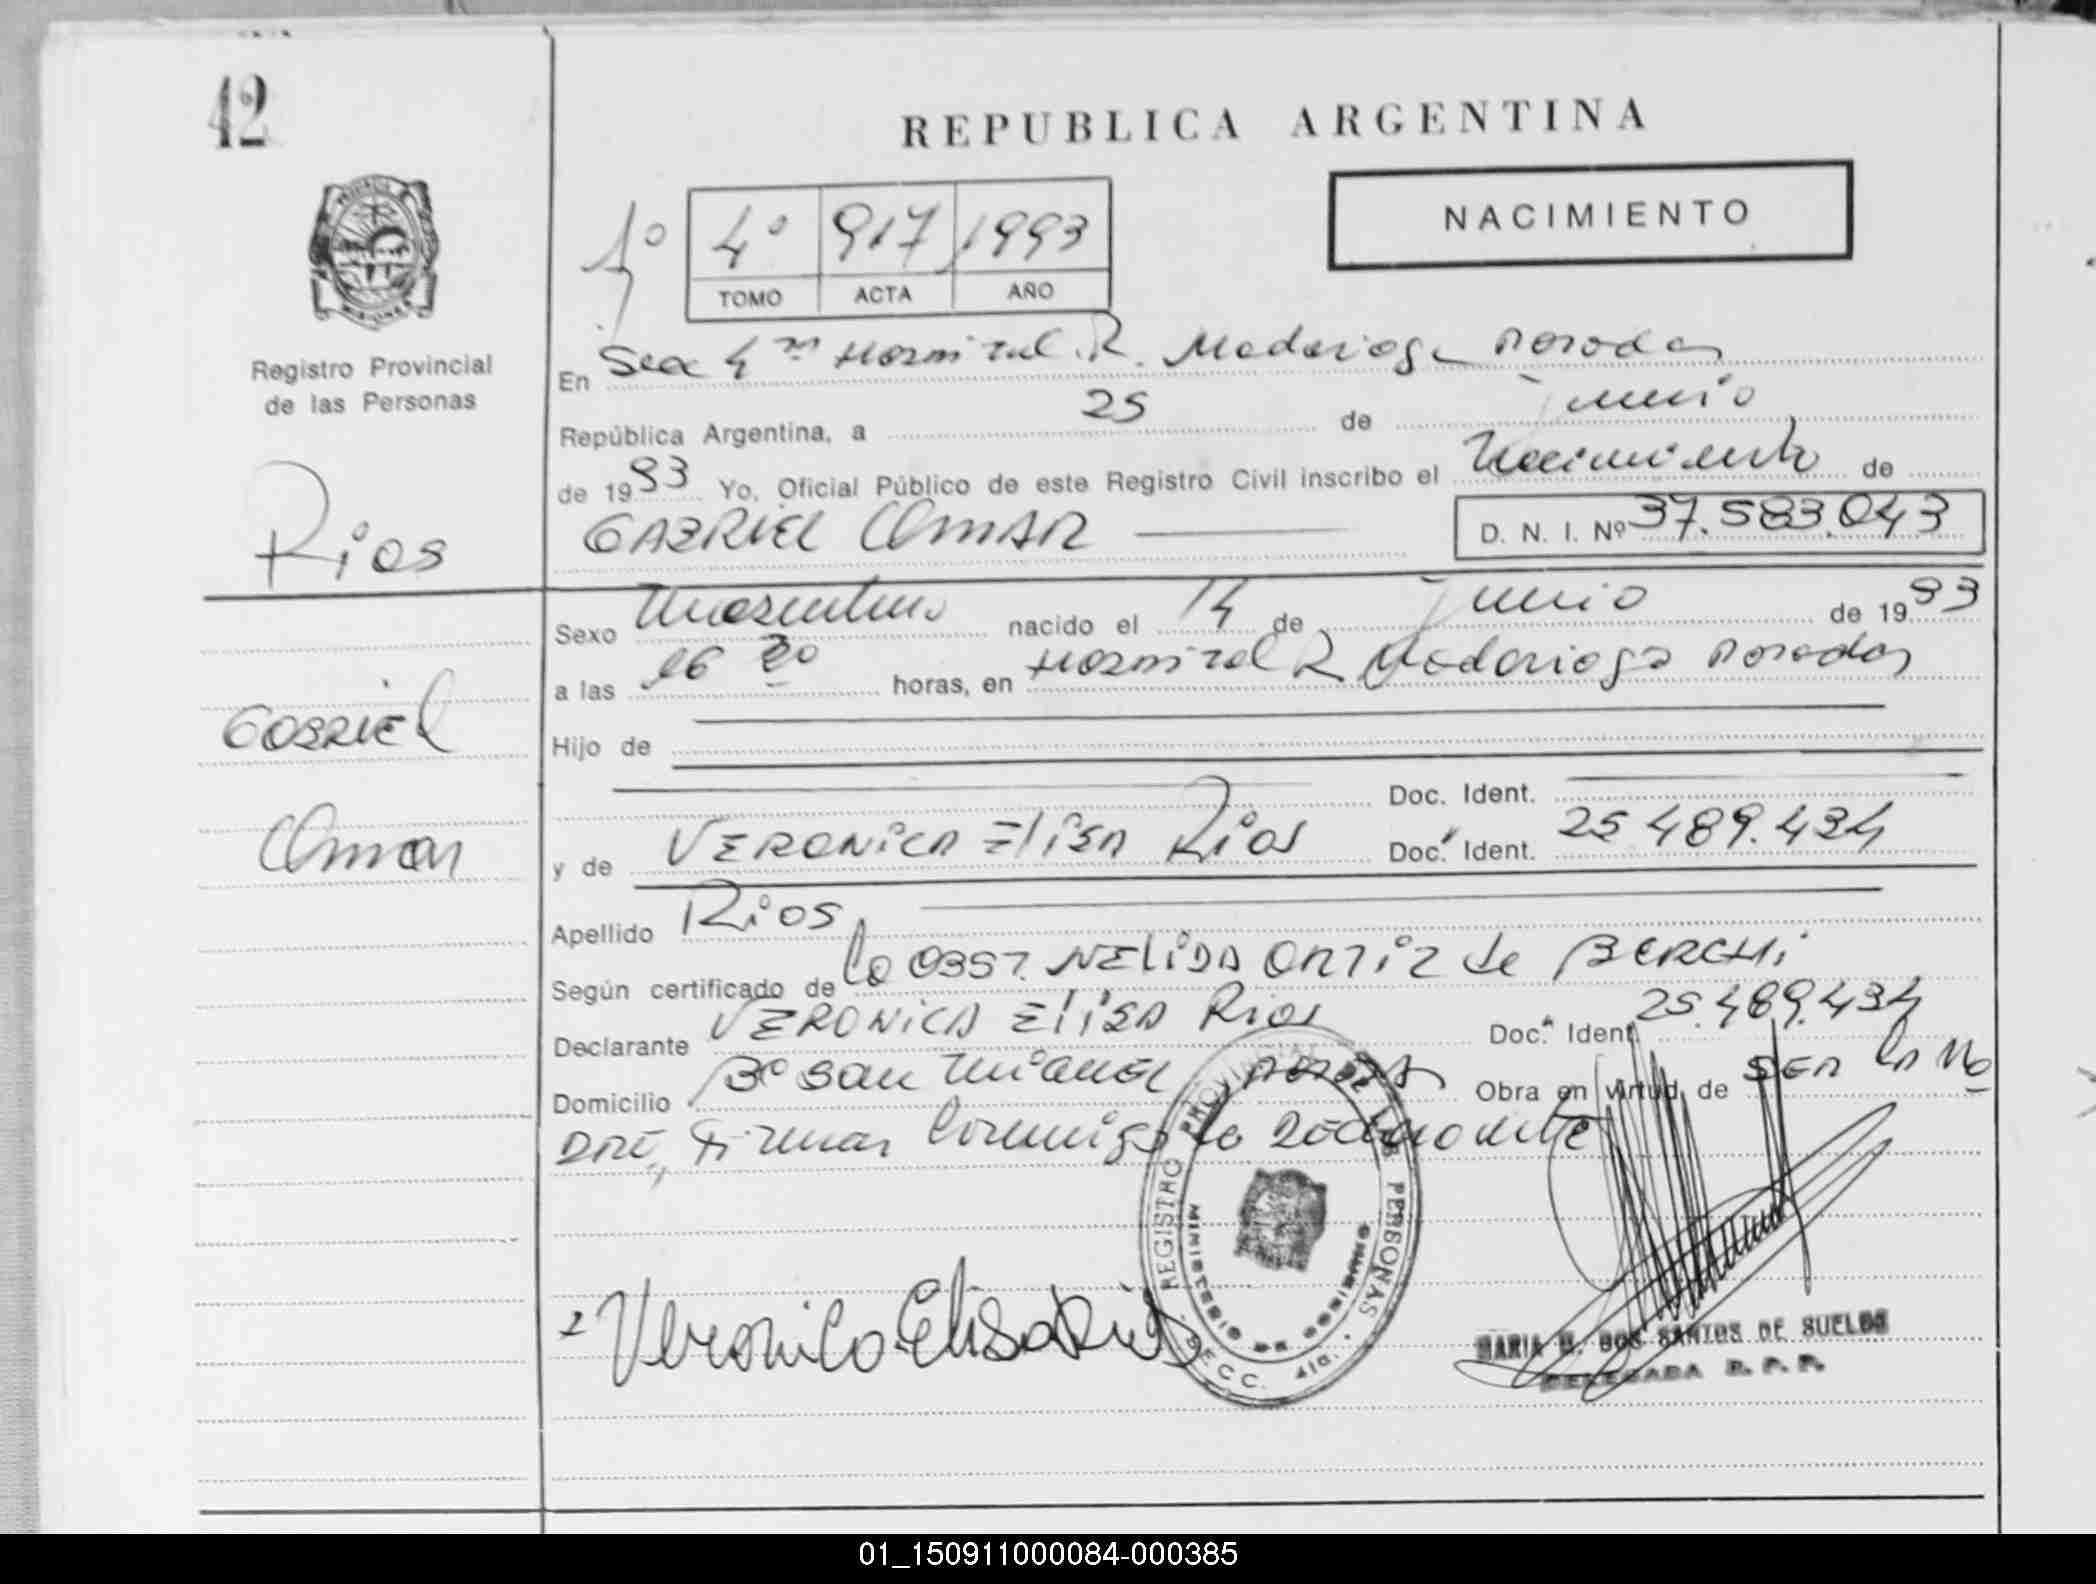 42
REPUBLICA ARGENTINA
NACIMIENTO
1º 4º 917 1993
TOMO ACTA AÑO
Registro Provincial
de las Personas
En Sec 4ta Hospital R. Madariaga Posadas
República Argentina, a 25 de junio
de 1993 Yo, Oficial Público de este Registro Civil inscribo el Nacimiento de
GABRIEL OMAR
D. N. I. Nº 37.583.043
Rios
Gabriel
Omar
Sexo Masculino nacido el 14 de junio de 1993
a las 16 20 horas, en Hospital R Madariaga Posadas
Hijo de
Doc. Ident.
y de VERONICA Elisa Rios Doc. Ident. 25 489.434
Apellido Rios
Según certificado de la OBST. NELIDA ORTIZ de BERCHI
Declarante VERONICA Elisa Rios Doc. Ident. 25.489.434
Domicilio Bº San Miguel Obra en virtud de SER LA MA
DRE, Firman Conmigo la Declarante
REGISTRO PROVINCIAL DE LAS PERSONAS
MINISTERIO DE GOBIERNO
Veronica Elisa Rios
MARIA DOS SANTOS DE SUELDS
DELEGADA R. P. P.
01_150911000084-000385